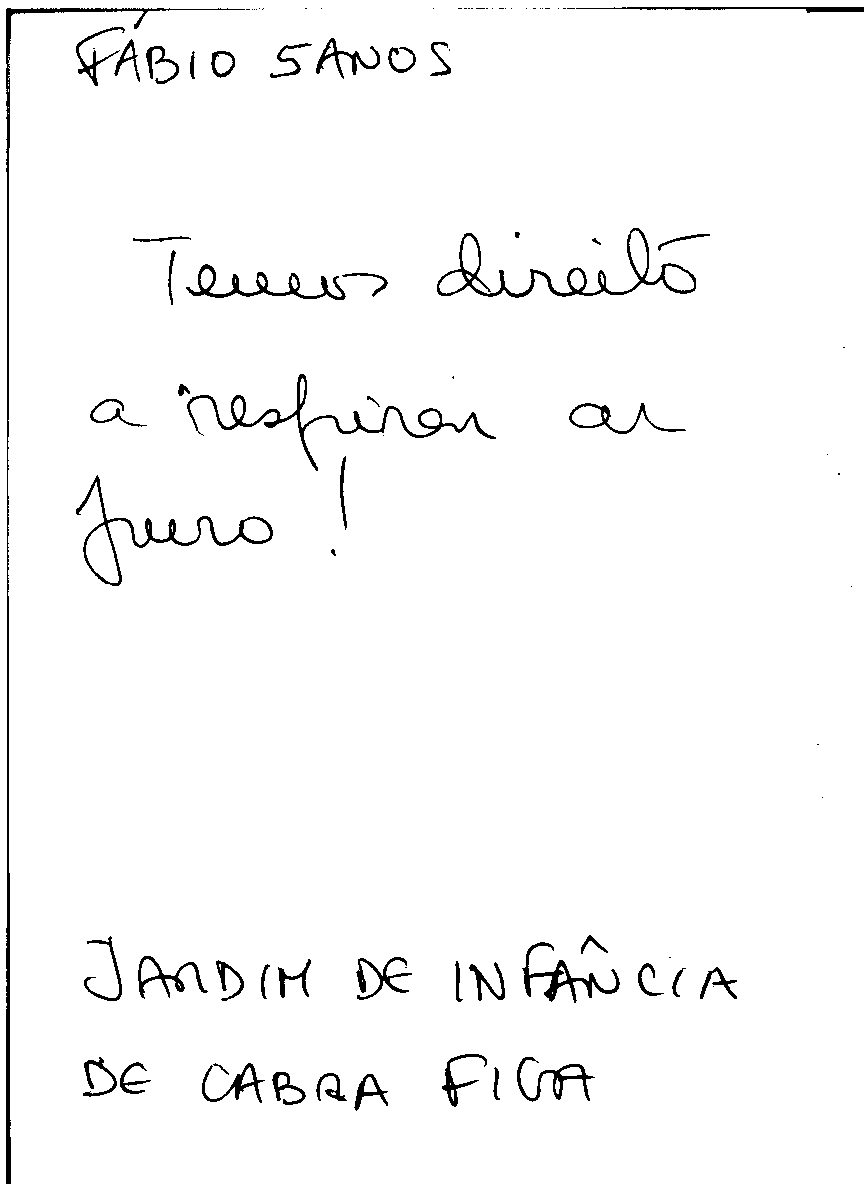 FÁBIO 5 ANOS
Temos direito
a respirar ar
puro!
JARDIM DE INFÂNCIA
DE CABRA FIGA